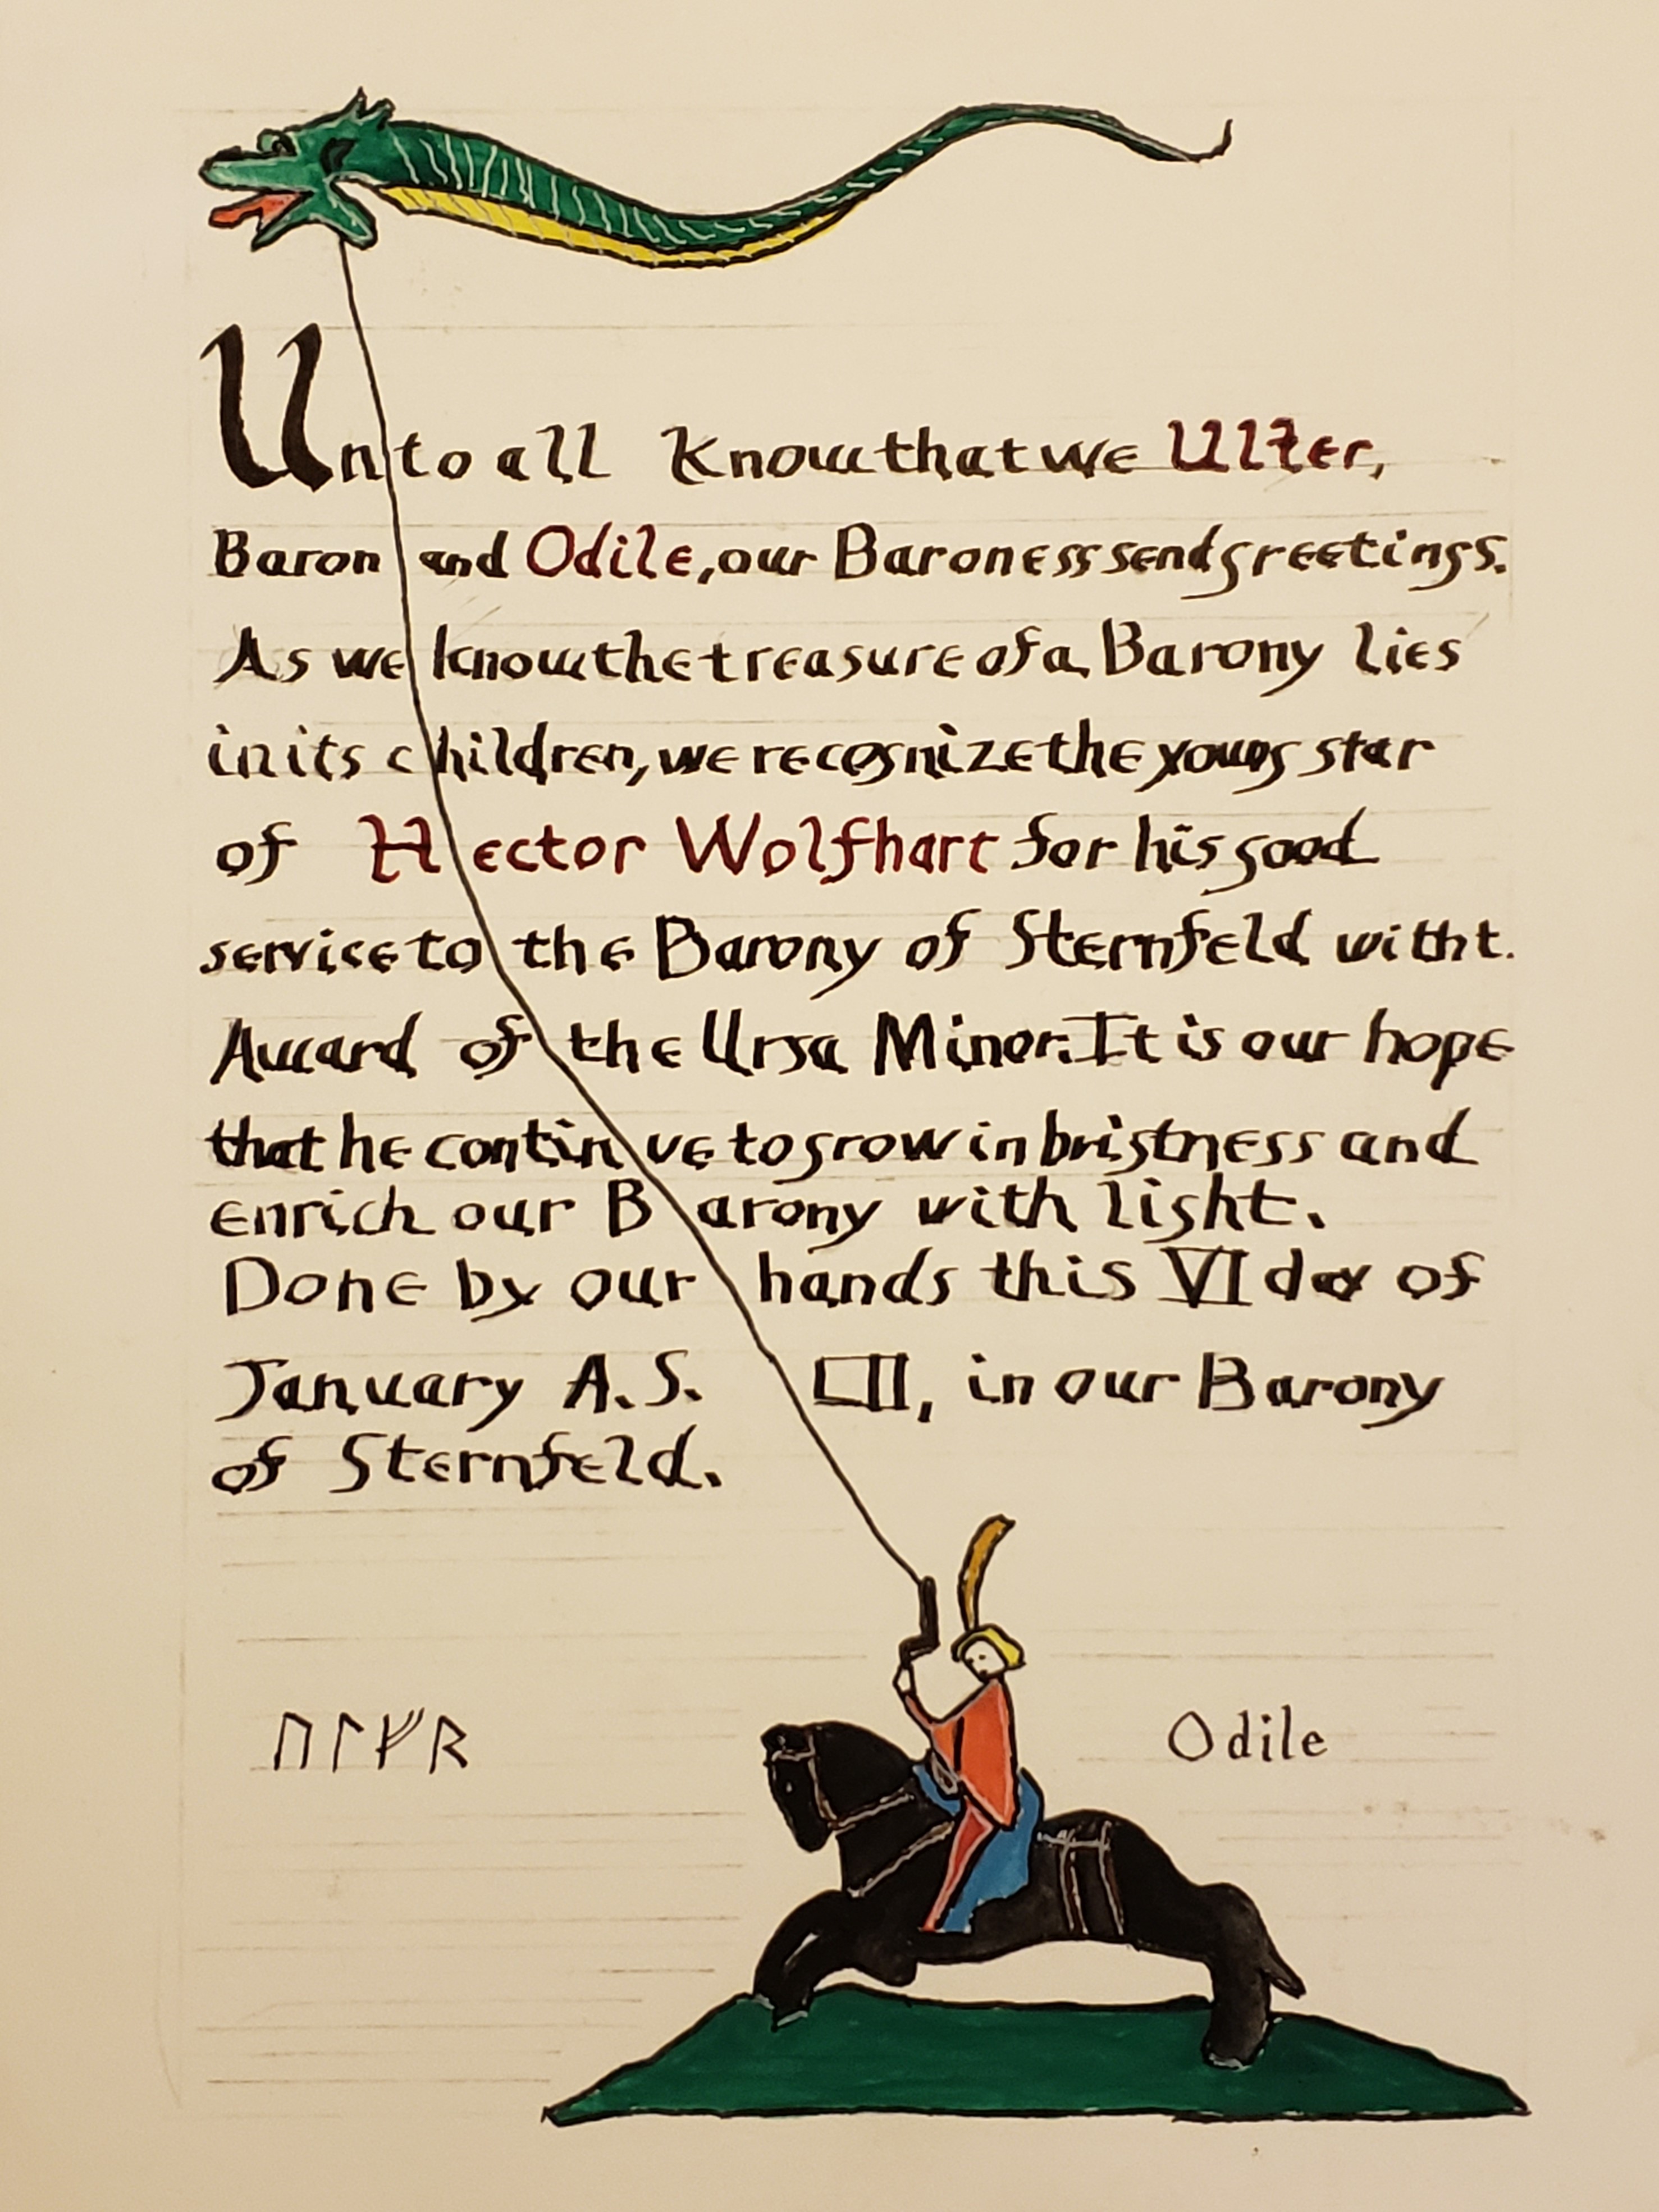 Unto all Know that we Ulfer,
Baron and Odile, our Baroness send greetings.
As we know the treasure of a Barony lies
in its children, we recognize the young star
of Hector Wolfhart for his good
service to the Barony of Sternfeld with t.
Award of the Ursa Minor. It is our hope
that he continue to grow in brigtness and
enrich our Barony with light.
Done by our hands this VI day of
January A.S. LII, in our Barony
of Sternfeld.
ᚢᛚᚠᚱ Odile